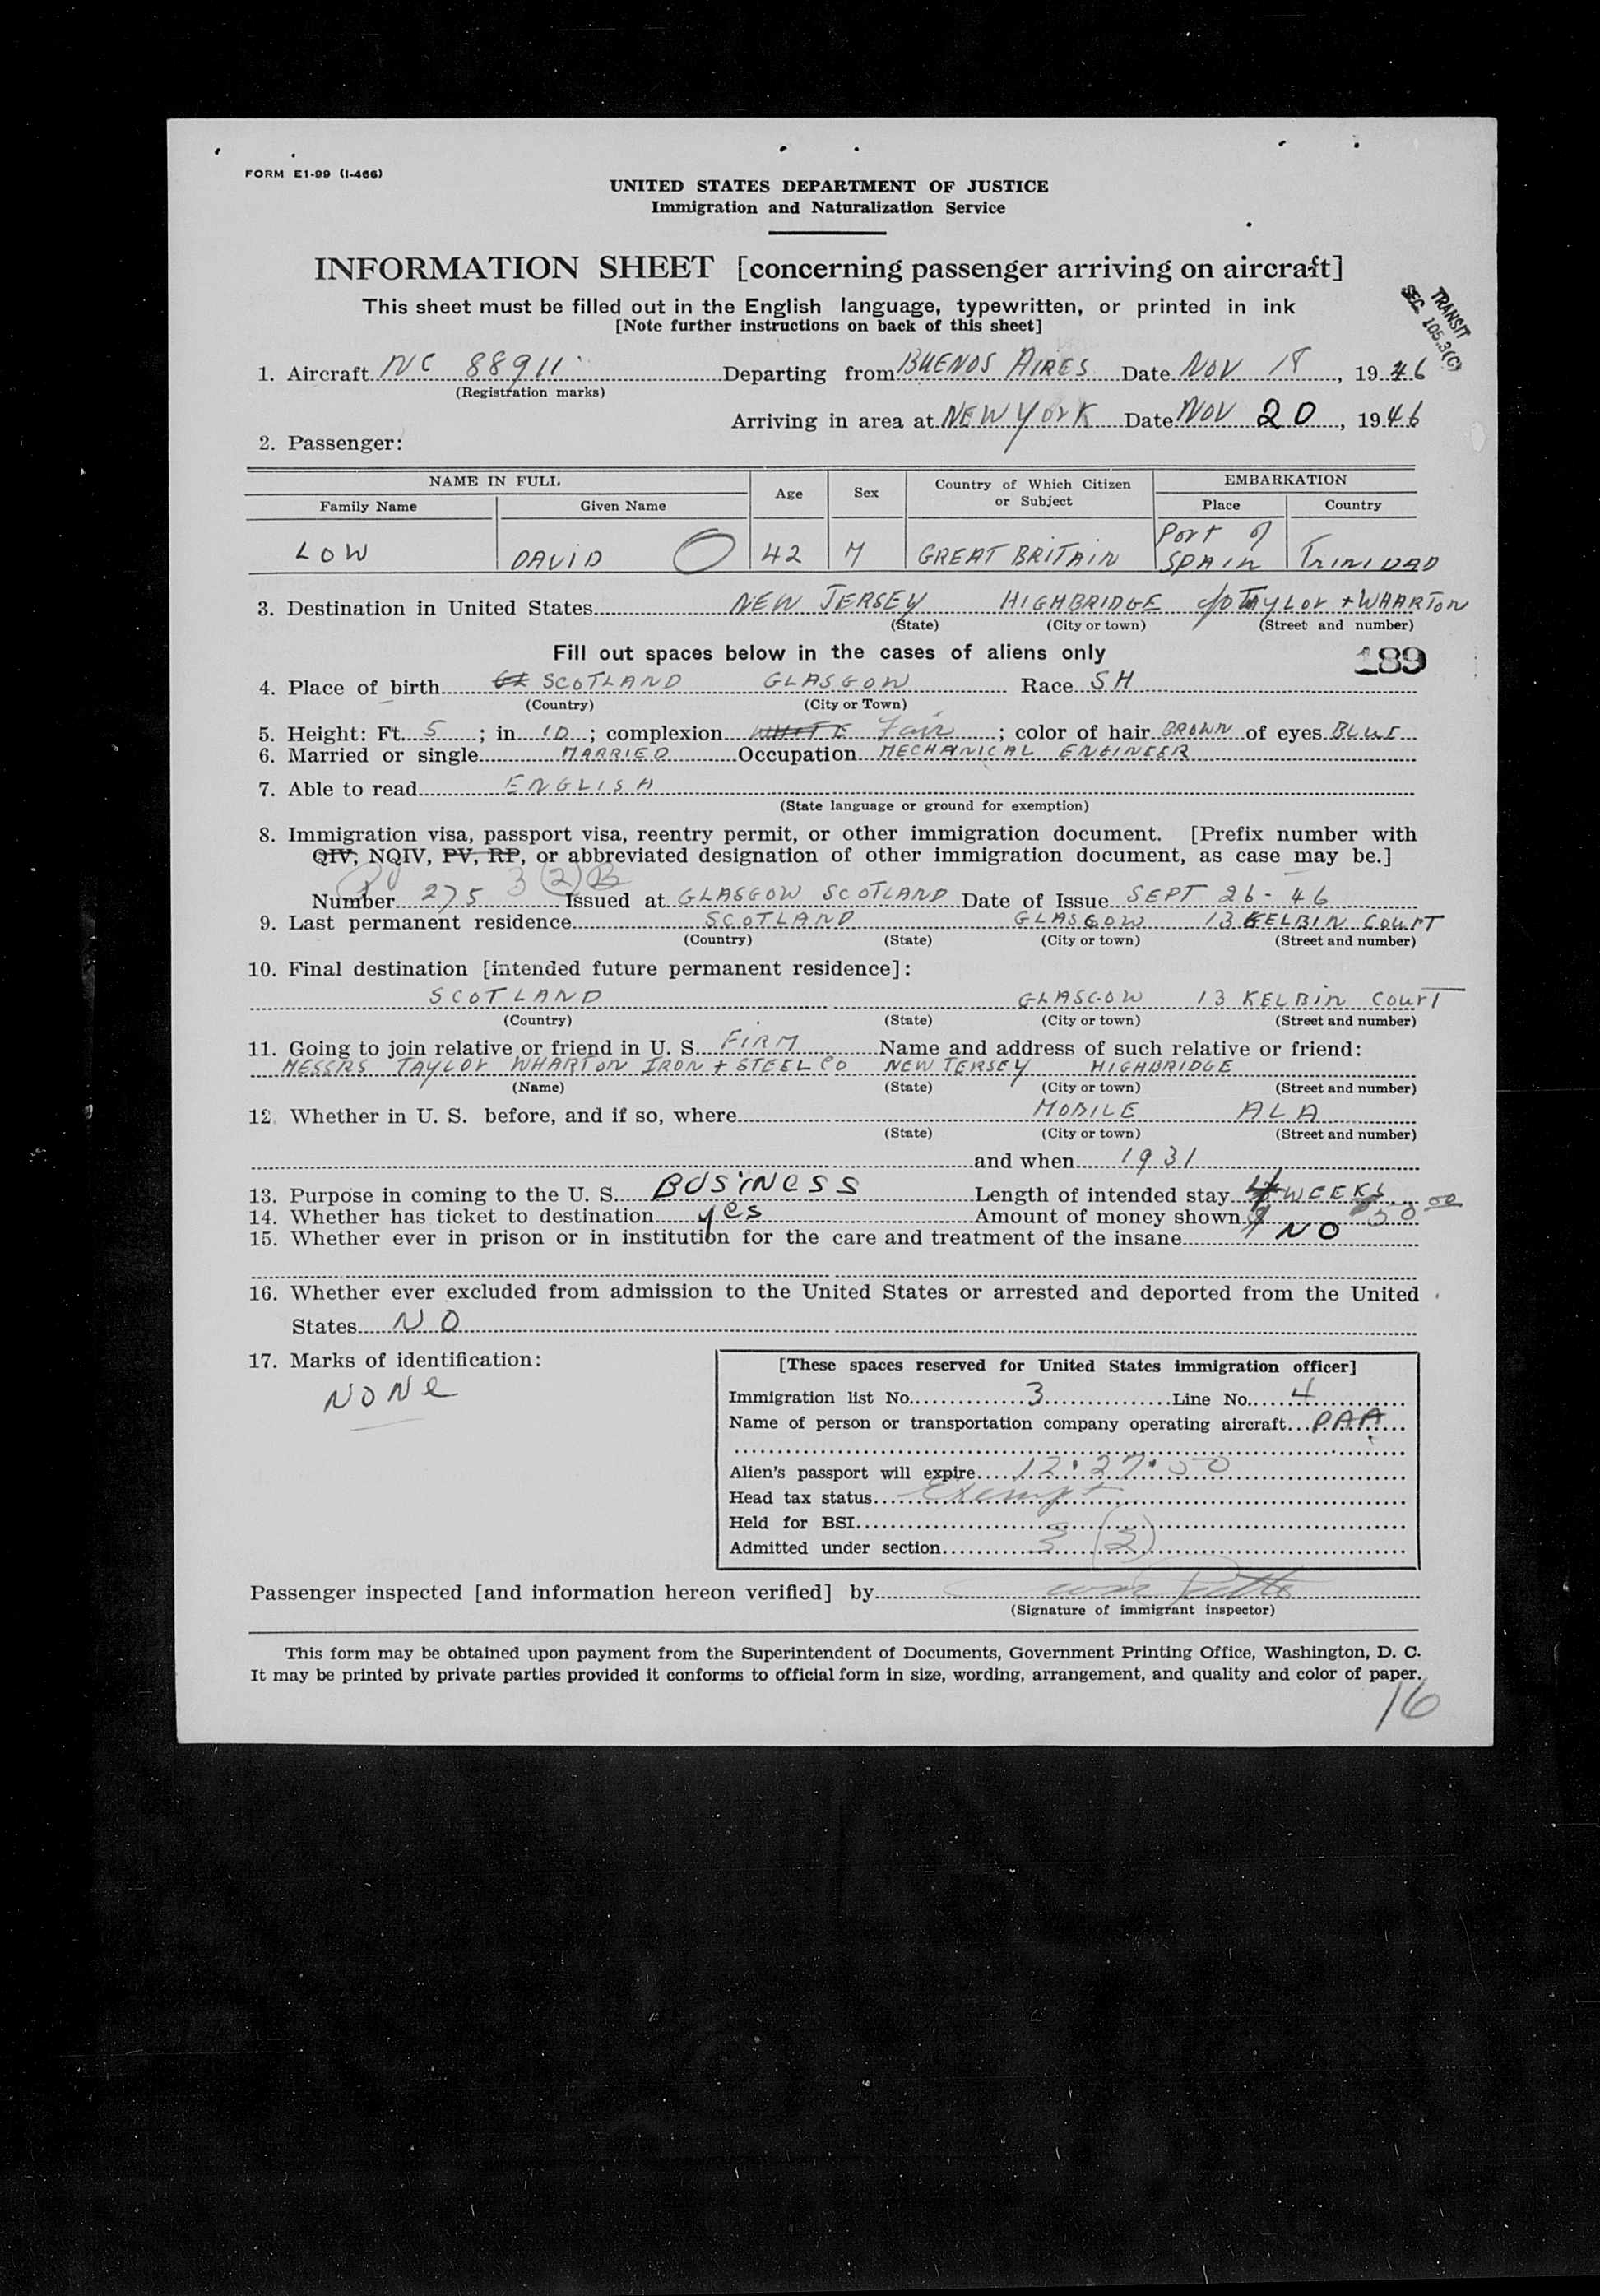 FORM E1-99 (I-466)
UNITED STATES DEPARTMENT OF JUSTICE
Immigration and Naturalization Service
INFORMATION SHEET [concerning passenger arriving on aircraft]
This sheet must be filled out in the English language, typewritten, or printed in ink
[Note further instructions on back of this sheet]
TRANSIT
SEC. 105.3(C)
1. Aircraft NC 88911 Departing from BUENOS AIRES Date NOV 18, 1946
(Registration marks)
Arriving in area at NEW YORK Date NOV 20, 1946
2. Passenger:
NAME IN FULL Age Sex Country of Which Citizen or Subject EMBARKATION
Family Name Given Name Place Country
LOW DAVID 42 M GREAT BRITAIN Port of SPAIN TRINIDAD
3. Destination in United States NEW JERSEY HIGHBRIDGE c/o TAYLOR + WHARTON
(State) (City or town) (Street and number)
Fill out spaces below in the cases of aliens only 189
4. Place of birth SCOTLAND GLASGOW Race SH
(Country) (City or Town)
5. Height: Ft. 5; in 10; complexion WHITE Fair; color of hair BROWN of eyes BLUE
6. Married or single MARRIED Occupation MECHANICAL ENGINEER
7. Able to read ENGLISH
(State language or ground for exemption)
8. Immigration visa, passport visa, reentry permit, or other immigration document. [Prefix number with
QIV, NQIV, PV, RP, or abbreviated designation of other immigration document, as case may be.]
3 (2) B
Number 275 Issued at GLASGOW SCOTLAND Date of Issue SEPT 26-46
9. Last permanent residence SCOTLAND GLASGOW 13 KELBIN COURT
(Country) (State) (City or town) (Street and number)
10. Final destination [intended future permanent residence]:
SCOTLAND GLASGOW 13 KELBIN COURT
(Country) (State) (City or town) (Street and number)
11. Going to join relative or friend in U. S. FIRM Name and address of such relative or friend:
MESSRS TAYLOR WHARTON IRON + STEEL CO NEW JERSEY HIGHBRIDGE
(Name) (State) (City or town) (Street and number)
12. Whether in U. S. before, and if so, where MOBILE ALA
(State) (City or town) (Street and number)
and when 1931
13. Purpose in coming to the U. S. BUSINESS Length of intended stay 4 WEEKS
14. Whether has ticket to destination yes Amount of money shown $
15. Whether ever in prison or in institution for the care and treatment of the insane NO
16. Whether ever excluded from admission to the United States or arrested and deported from the United
States NO
17. Marks of identification:
NONE
[These spaces reserved for United States immigration officer]
Immigration list No. 3 Line No. 4
Name of person or transportation company operating aircraft PAA
Alien's passport will expire 12·27·50
Head tax status Exempt
Held for BSI
Admitted under section 3 (2)
Passenger inspected [and information hereon verified] by
(Signature of immigrant inspector)
This form may be obtained upon payment from the Superintendent of Documents, Government Printing Office, Washington, D. C.
It may be printed by private parties provided it conforms to official form in size, wording, arrangement, and quality and color of paper.
16